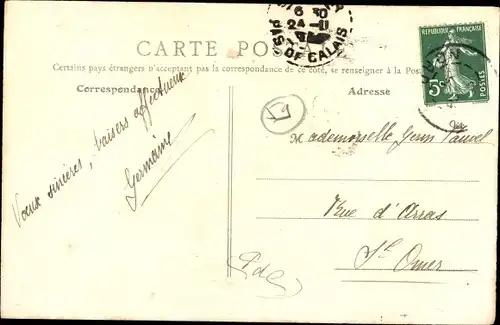 CARTE
Certains pays étrangers n'acceptant pas la correspondance de ce côté, se renseigner à la
Correspondance
Adresse
6 30
24 -11
PAS-DE-CALAIS
RÉPUBLIQUE FRANÇAISE
5c
POSTES
Vœux sincères, baisers affectueux
Germaine
Mademoiselle
Rue d'Arras
St Omer
PdC